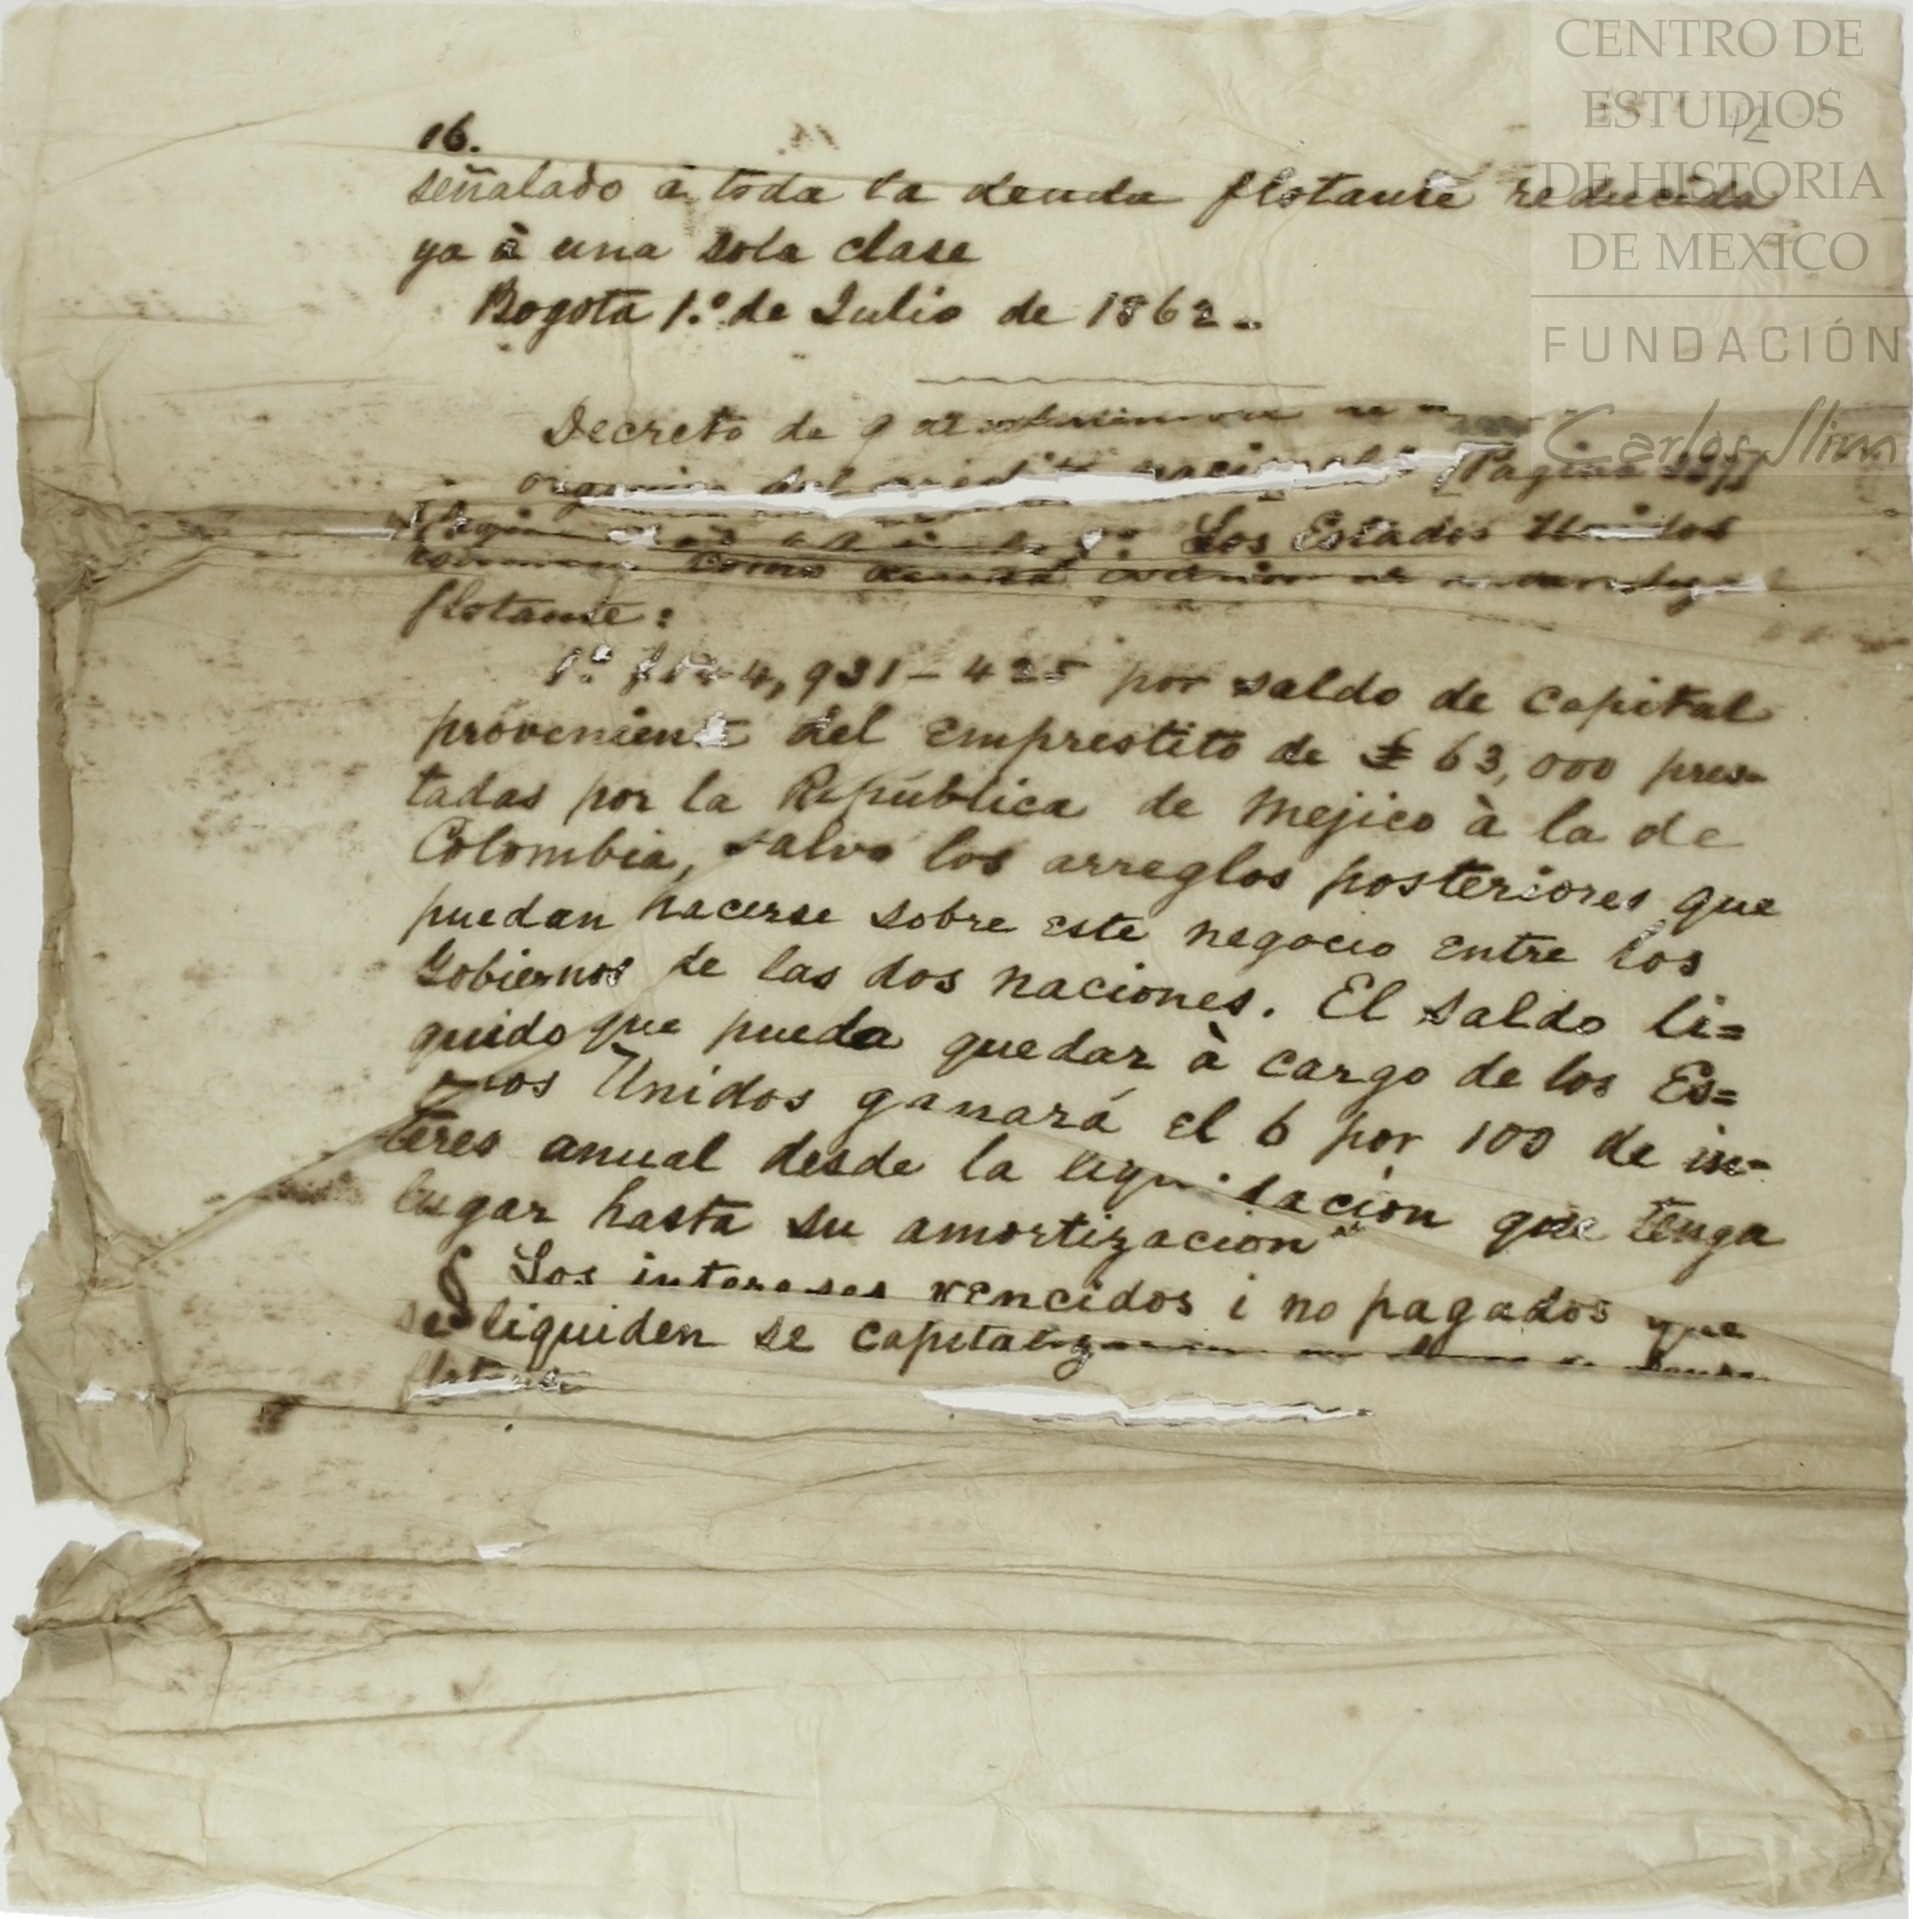 CENTRO DE
ESTUDIOS
DE HISTORIA
DE MEXICO
FUNDACIÓN
Carlos Slim
12
16.
señalado à toda la deuda flotante reducida
ya à una sola clase
Bogota 1.º de Julio de 1862.
Decreto de 9 de
organico del credito nacional [Pagina
Los Estados Unidos
como deuda
flotante:
1.º 4,931-425 por saldo de capital
proveniente del emprestito de £ 63,000 pres-
tadas por la República de Mejico à la de
Colombia, salvo los arreglos posteriores que
puedan hacerse sobre este negocio entre los
Gobiernos de las dos naciones. El saldo li=
quido que pueda quedar à cargo de los Es=
Unidos ganará el 6 por 100 de in-
teres anual desde la liquidacion que tenga
lugar hasta su amortizacion
§ Los intereses vencidos i no pagados que
se liquiden se
flotante